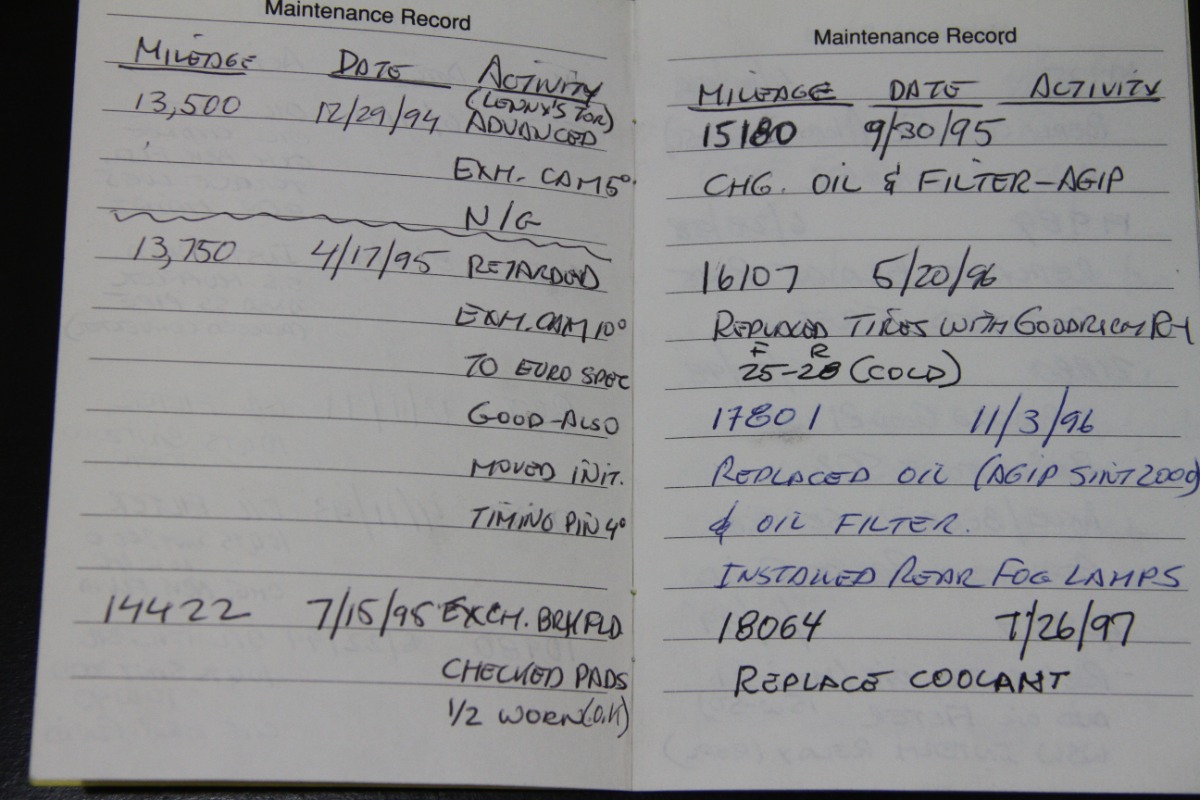 Maintenance Record
MILEAGE DATE ACTIVITY
13,500 12/29/94 (LENNY'S TOR)
ADVANCED
EXH. CAM 5°
N/G
13,750 4/17/95 RETARDED
EXH. CAM 10°
TO EURO SPEC
GOOD-ALSO
MOVED INIT.
TIMING PIN 4°
14422 7/15/95 EXCH. BRK FLD
CHECKED PADS
1/2 WORN (O.K)
Maintenance Record
MILEAGE DATE ACTIVITY
15180 9/30/95
CHG. OIL & FILTER-AGIP
16107 5/20/96
REPLACED TIRES WITH GOODRICH RH
F R
25-28 (COLD)
17801 11/3/96
REPLACED OIL (AGIP SINT 2000)
& OIL FILTER.
INSTALLED REAR FOG LAMPS
18064 7/26/97
REPLACE COOLANT